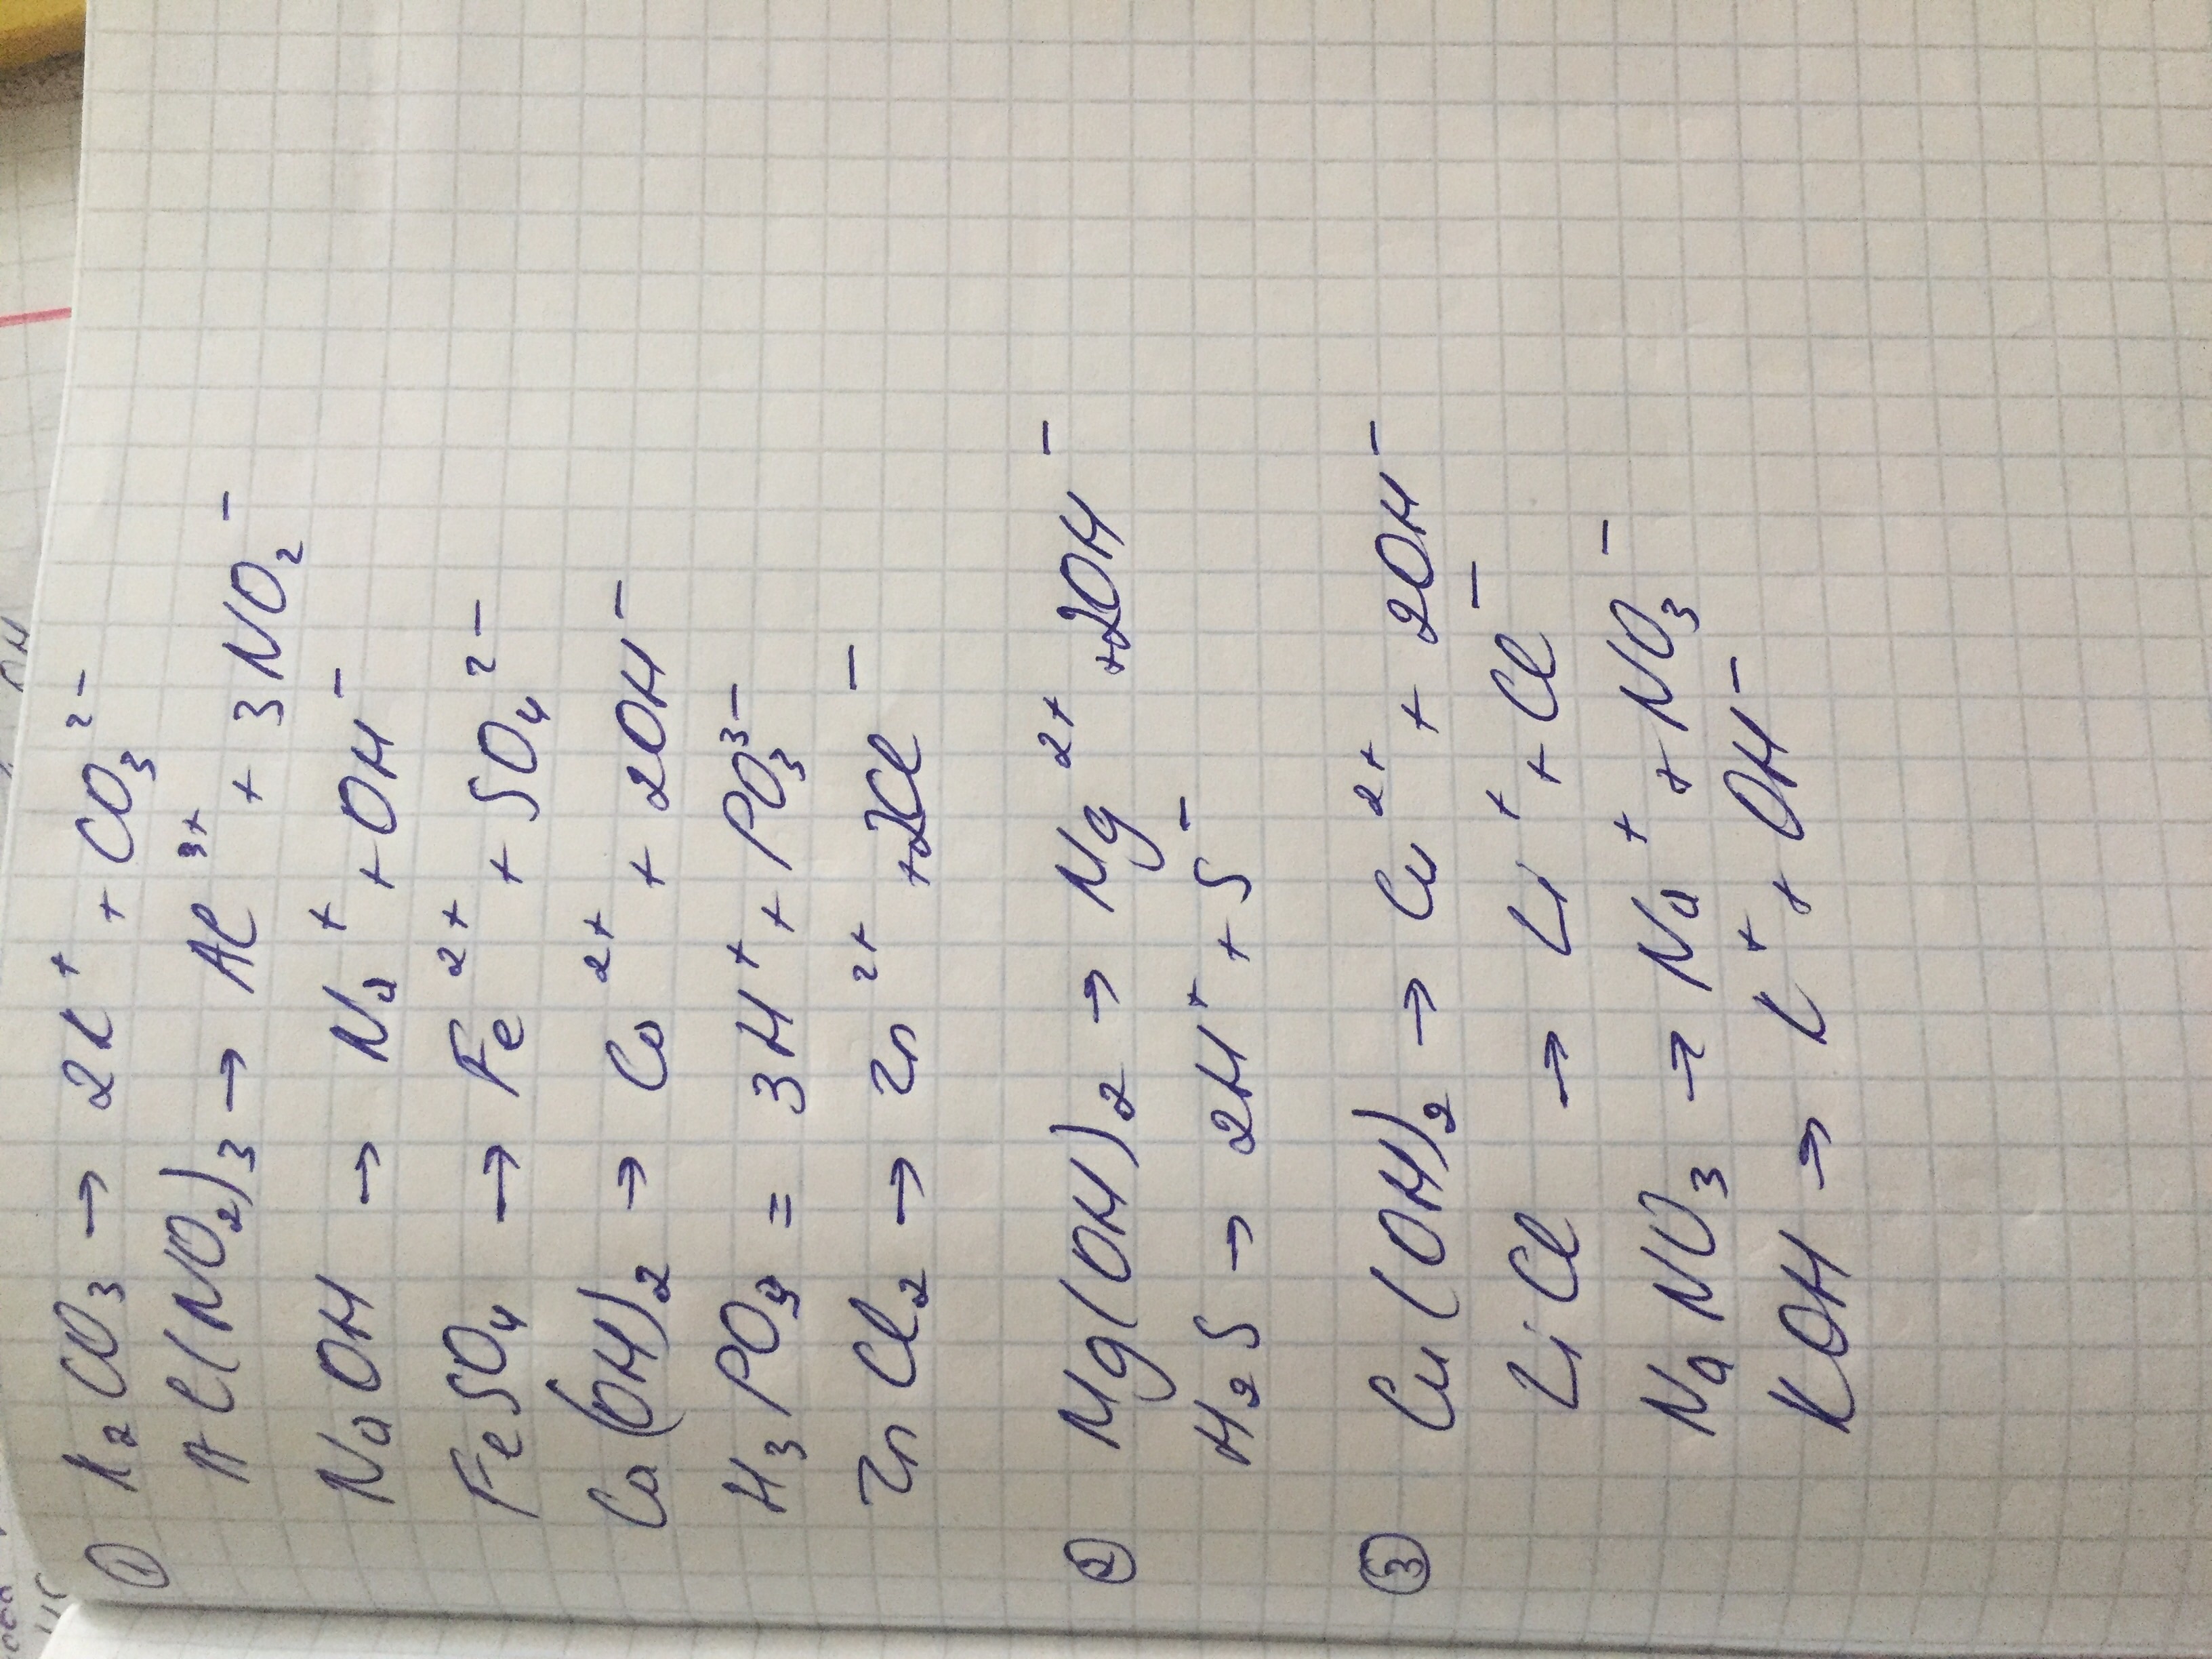 ① K₂CO₃ → 2K⁺ + CO₃²⁻
Al(NO₂)₃ → Al³⁺ + 3NO₂⁻
NaOH → Na⁺ + OH⁻
FeSO₄ → Fe²⁺ + SO₄²⁻
Ca(OH)₂ → Ca²⁺ + 2OH⁻
H₃PO₃ = 3H⁺ + PO₃³⁻
ZnCl₂ → Zn²⁺ + 2Cl⁻
② Mg(OH)₂ → Mg²⁺ + 2OH⁻
H₂S → 2H⁺ + S⁻
③ Cu(OH)₂ → Cu²⁺ + 2OH⁻
LiCl → Li⁺ + Cl⁻
NaNO₃ → Na⁺ + NO₃⁻
KOH → K⁺ + OH⁻